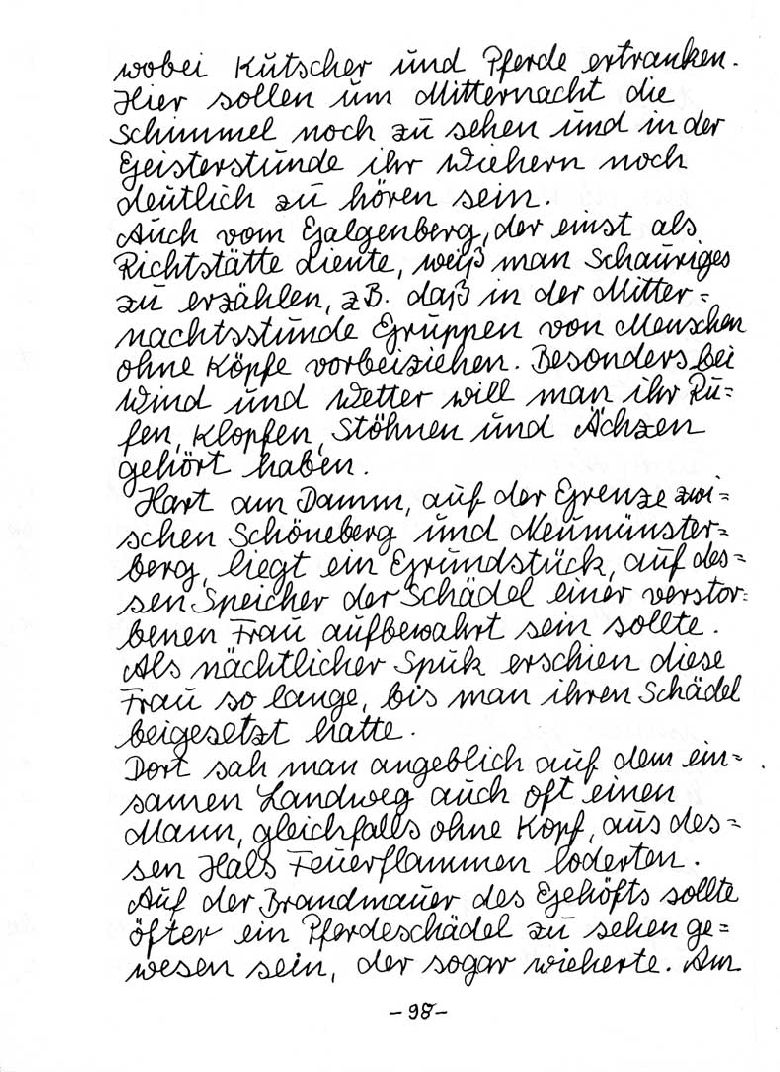 wobei Kutscher und Pferde ertranken.
Hier sollen um Mitternacht die
Schimmel noch zu sehen und in der
Geisterstunde ihr Wiehern noch
deutlich zu hören sein.
Auch vom Galgenberg, der einst als
Richtstätte diente, weiß man Schauriges
zu erzählen, z.B. daß in der Mitter=
nachtsstunde Gruppen von Menschen
ohne Köpfe vorbeiziehen. Besonders bei
Wind und Wetter will man ihr Ru=
fen, Klopfen, Stöhnen und Ächzen
gehört haben.
Hart am Damm, auf der Grenze zwi=
schen Schöneberg und Neumünster=
berg, liegt ein Grundstück, auf des=
sen Speicher der Schädel einer verstor=
benen Frau aufbewahrt sein sollte.
Als nächtlicher Spuk erschien diese
Frau so lange, bis man ihren Schädel
beigesetzt hatte.
Dort sah man angeblich auf dem ein=
samen Landweg auch oft einen
Mann, gleichfalls ohne Kopf, aus des=
sen Hals Feuerflammen loderten.
Auf der Brandmauer des Gehöfts sollte
öfter ein Pferdeschädel zu sehen ge=
wesen sein, der sogar wieherte. Am
-98-